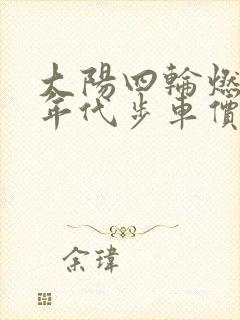 太陽四輪燃
年代步車價
余瑋